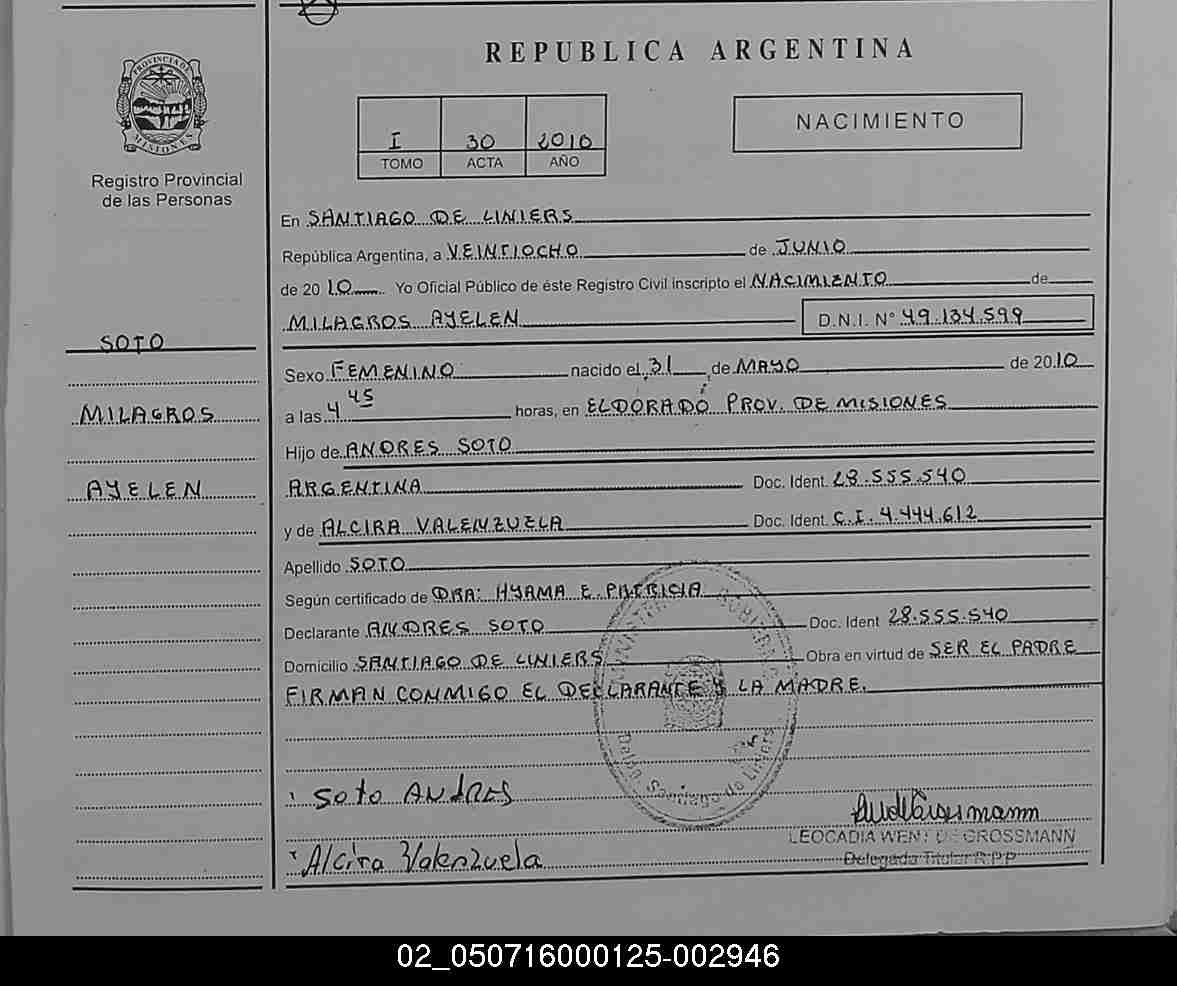 REPUBLICA ARGENTINA
PROVINCIA DE
MISIONES
Registro Provincial
de las Personas
I 30 2010
TOMO ACTA AÑO
NACIMIENTO
SOTO
MILAGROS
AYELEN
En SANTIAGO DE LINIERS
República Argentina, a VEINTIOCHO de JUNIO
de 2010 Yo Oficial Público de éste Registro Civil inscripto el NACIMIENTO de
MILAGROS AYELEN D.N.I. N° 49.134.599
Sexo FEMENINO nacido el 31 de MAYO de 2010
a las 4 45 horas, en ELDORADO PROV. DE MISIONES
Hijo de ANDRES SOTO
ARGENTINA Doc. Ident. 28.555.540
y de ALCIRA VALENZUELA Doc. Ident. C.I. 4.444.612
Apellido SOTO
Según certificado de DRA: HYAMA E. PATRICIA
Declarante ANDRES SOTO Doc. Ident 28.555.540
Domicilio SANTIAGO DE LINIERS Obra en virtud de SER EL PADRE
FIRMAN CONMIGO EL DECLARANTE Y LA MADRE.
Deleg. Santiago de Liniers
Soto ANDRES
LEOCADIA WENT DE GROSSMANN
Delegada Titular R.P.P
Alcira Valenzuela
02_050716000125-002946